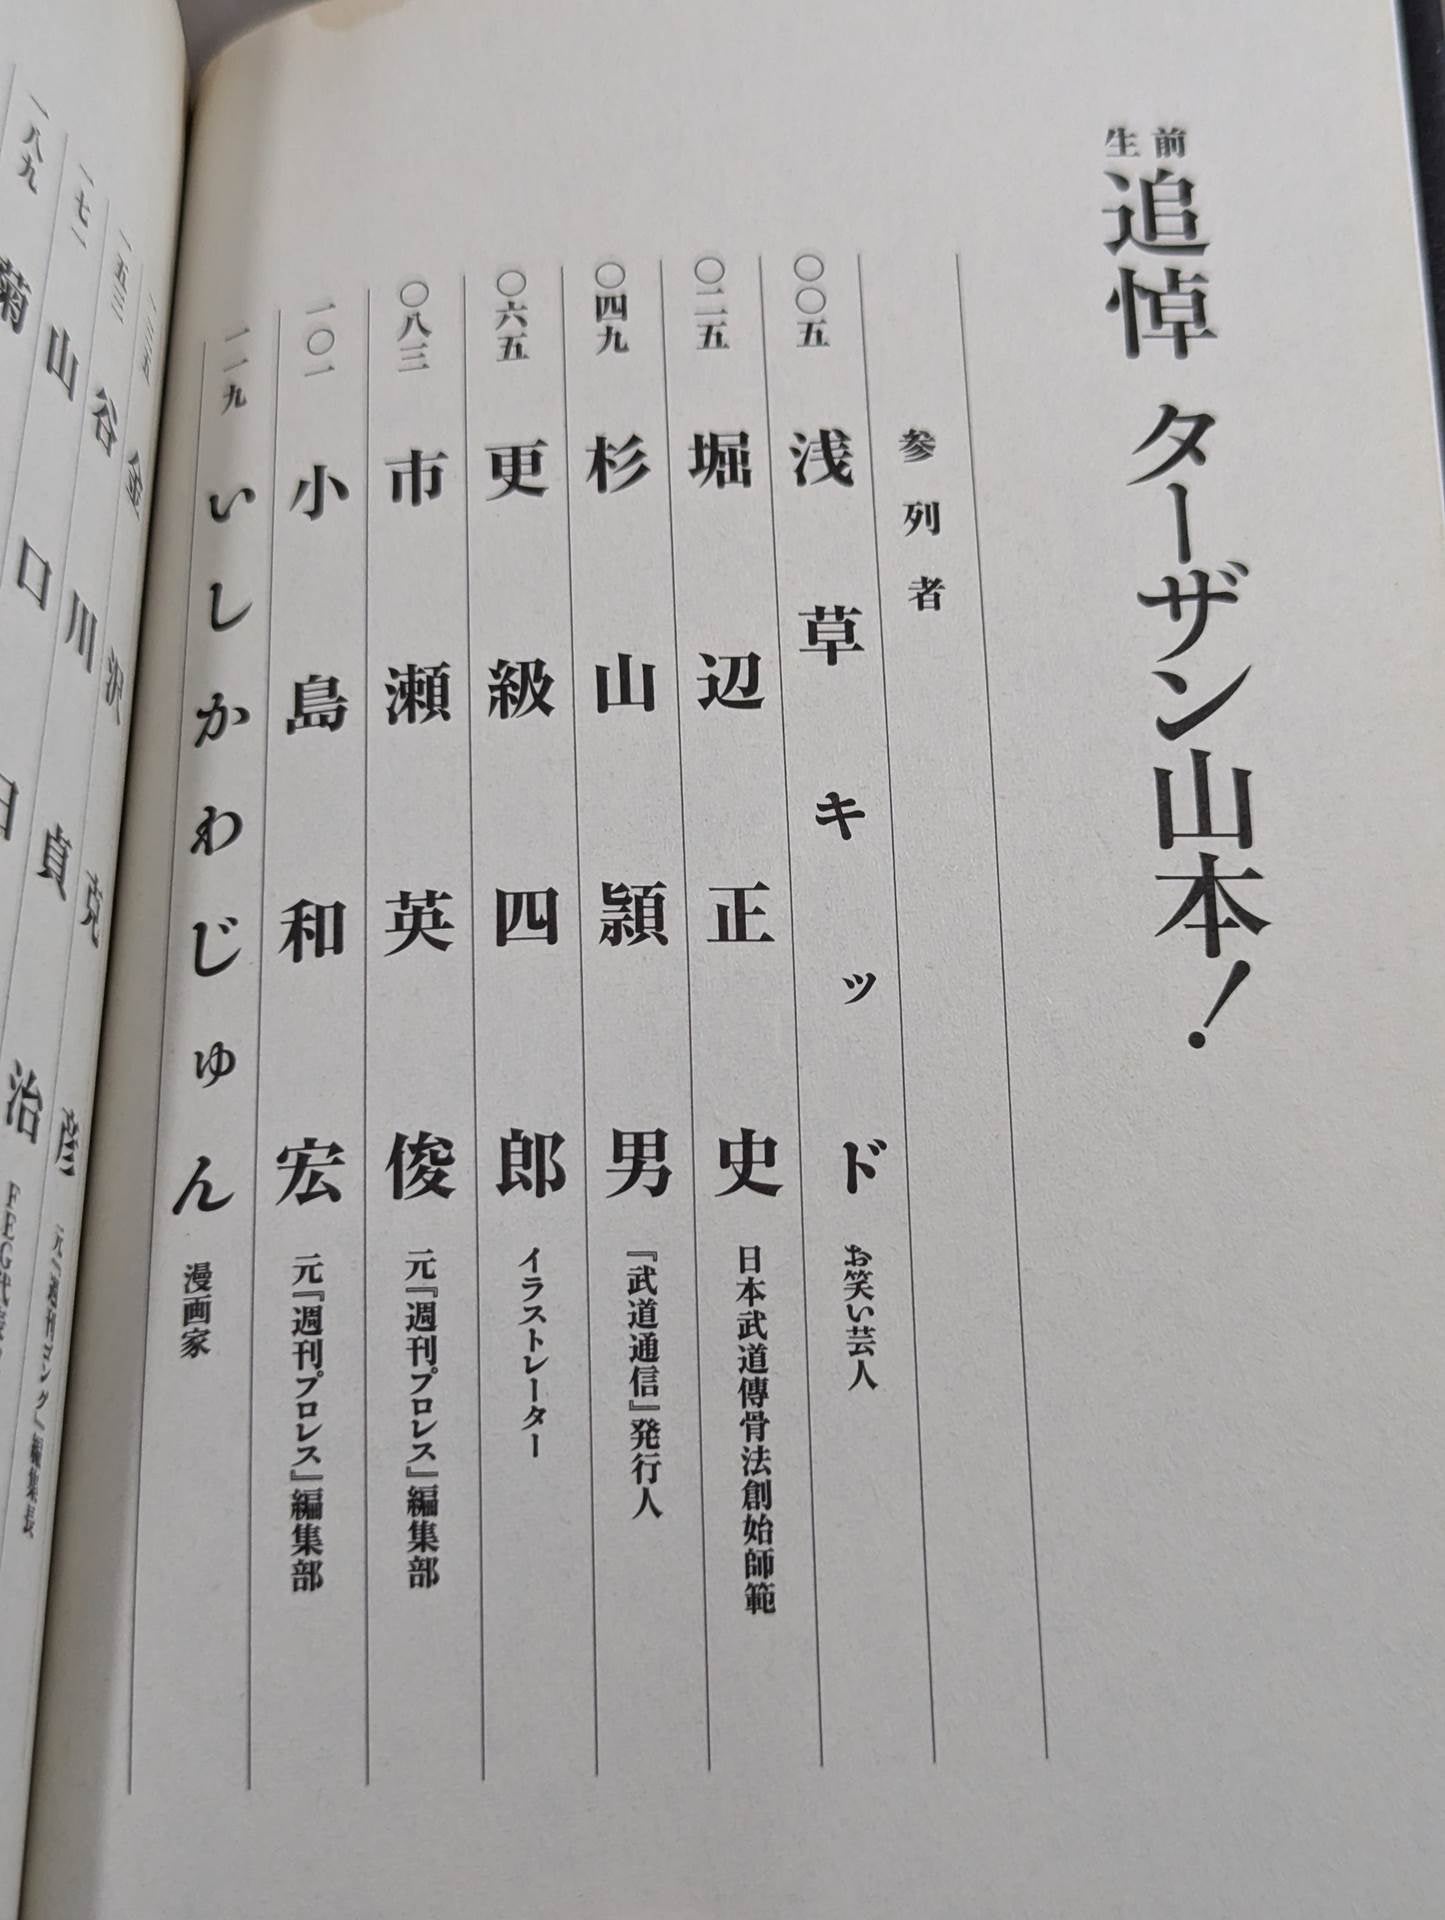 生前
追悼 ターザン山本!
参列者
〇〇五 浅草キッド お笑い芸人
〇二五 堀辺正史 日本武道傳骨法創始師範
〇四九 杉山頴男 『武道通信』発行人
〇六五 更級四郎 イラストレーター
〇八三 市瀬英俊 元『週刊プロレス』編集部
一〇一 小島和宏 元『週刊プロレス』編集部
一一九 いしかわじゅん 漫画家
一三五 金沢克彦 元『週刊ゴング』編集長
一五三 谷川貞治 FEG代表
一七一 山口日
一八九 菊